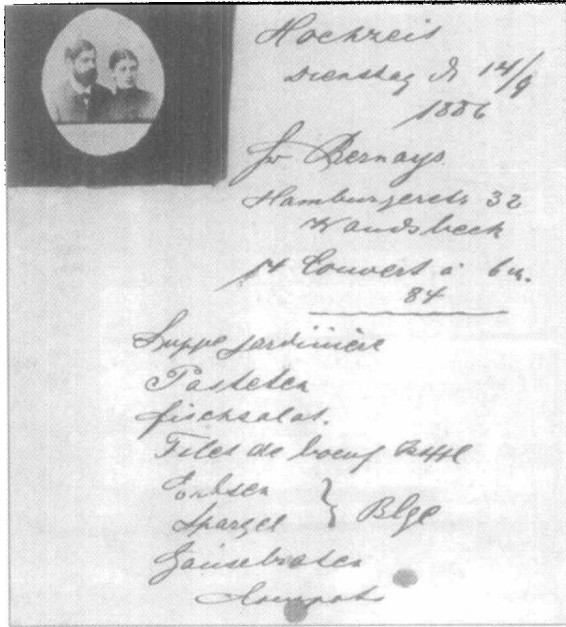 Hochzeit
Dienstag d 14/9
1886
Fr Bernays
Hamburgerstr 32
Wandsbeck
14 Couvert à 6 m.
84
Suppe jardinière
Pasteten
Fischsalat.
Filet de boeuf
Erbsen
Spargel } Blge
Gänsebraten
Compots